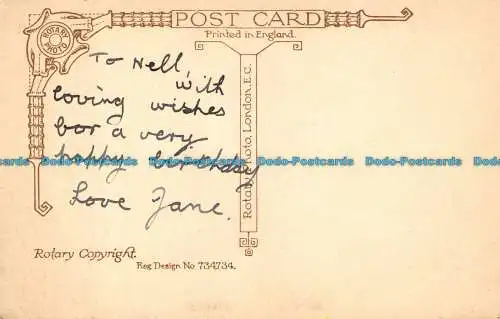 POST CARD
Printed in England.
ROTARY PHOTO
To Nell,
with
loving wishes
for a very
happy birthday
Love Jane.
Rotary Photo, London, E.C.
Rotary Copyright.
Reg Design No 734734.
Dodo-Postcards Dodo-Postcards Dodo-Postcards Dodo-Postcards Dodo-Postcards